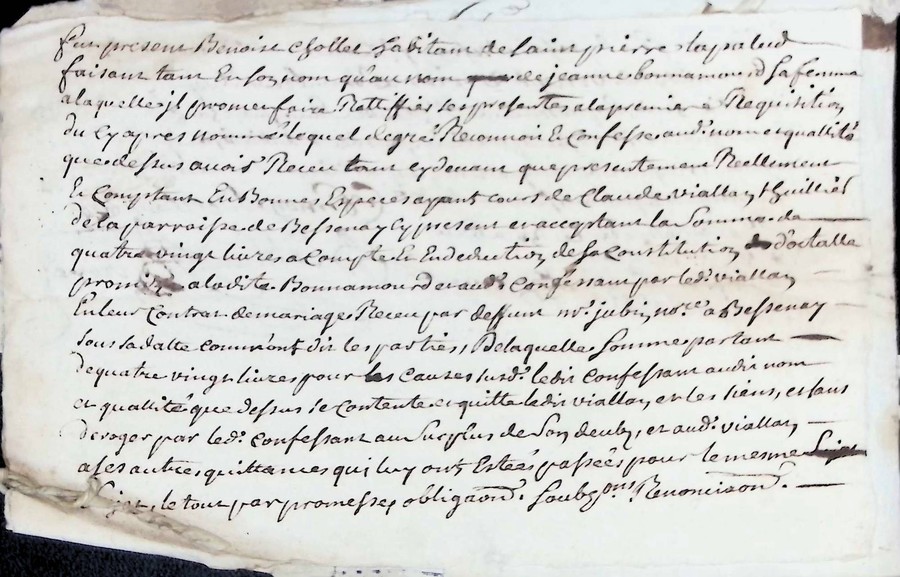 fut present Benoist chollet habitant de saint pierre lapalud
faisant tant En son nom qu'au nom de jeanne bonnamourd sa femme
a laquelle jl promet faire Rattiffier les presentes a la premiere Requisition
du cy apres nommé lequel de gré Reconnoit Et Confesse aud. nom et quallité
que dessus avoir Receu tant cy devant que presentement Reellement
Et Comptant En Bonnes Especes ayant cours de Claude viallon thuillier
de la parroisse de Bessenay Cy present et acceptant la Somme de
quatre vingt livres a Compte Et En deduction de la Constitution dotalle
promise a ladite Bonnamourd et aud. Confessant par led. viallon
En leur Contrat de mariage Receu par deffunt me. jubin no.re a Bessenay
sous sa datte comm'ont dit les parties, De laquelle Somme partant
de quatre vingt livres pour les Causes susd. ledit Confessant audit nom
et quallité que dessus se contente et quitte ledit viallon et les siens, et sans
deroger par led. confessant au Surplus de Son deub, et aud. viallon
a ses autres quittances qui luy ont Estées passées pour le mesme
Sujet, le tout par promesse, obligaond. Soubz.ons. Renonciaond.